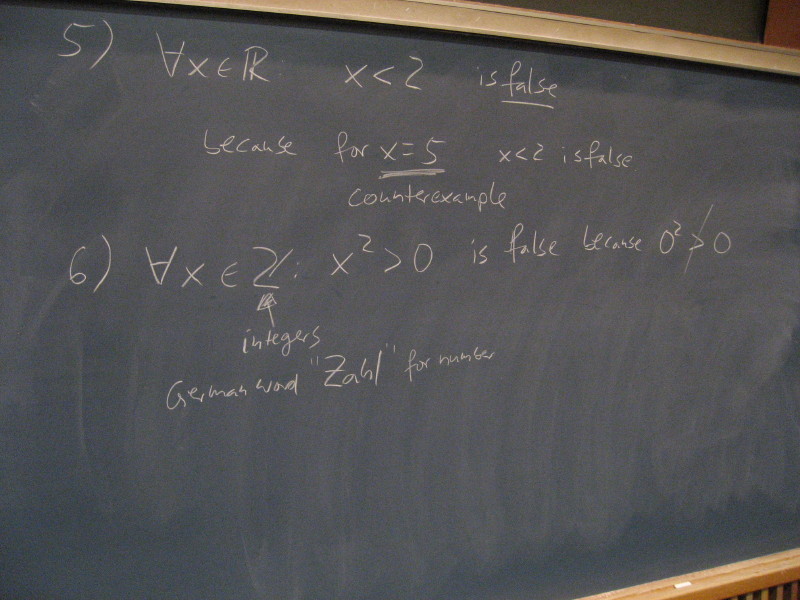 5) ∀x∈ℝ x<2 is false
because for x=5 x<2 is false
counterexample
6) ∀x∈ℤ: x²>0 is false because 0²≯0
integers
German word "Zahl" for number